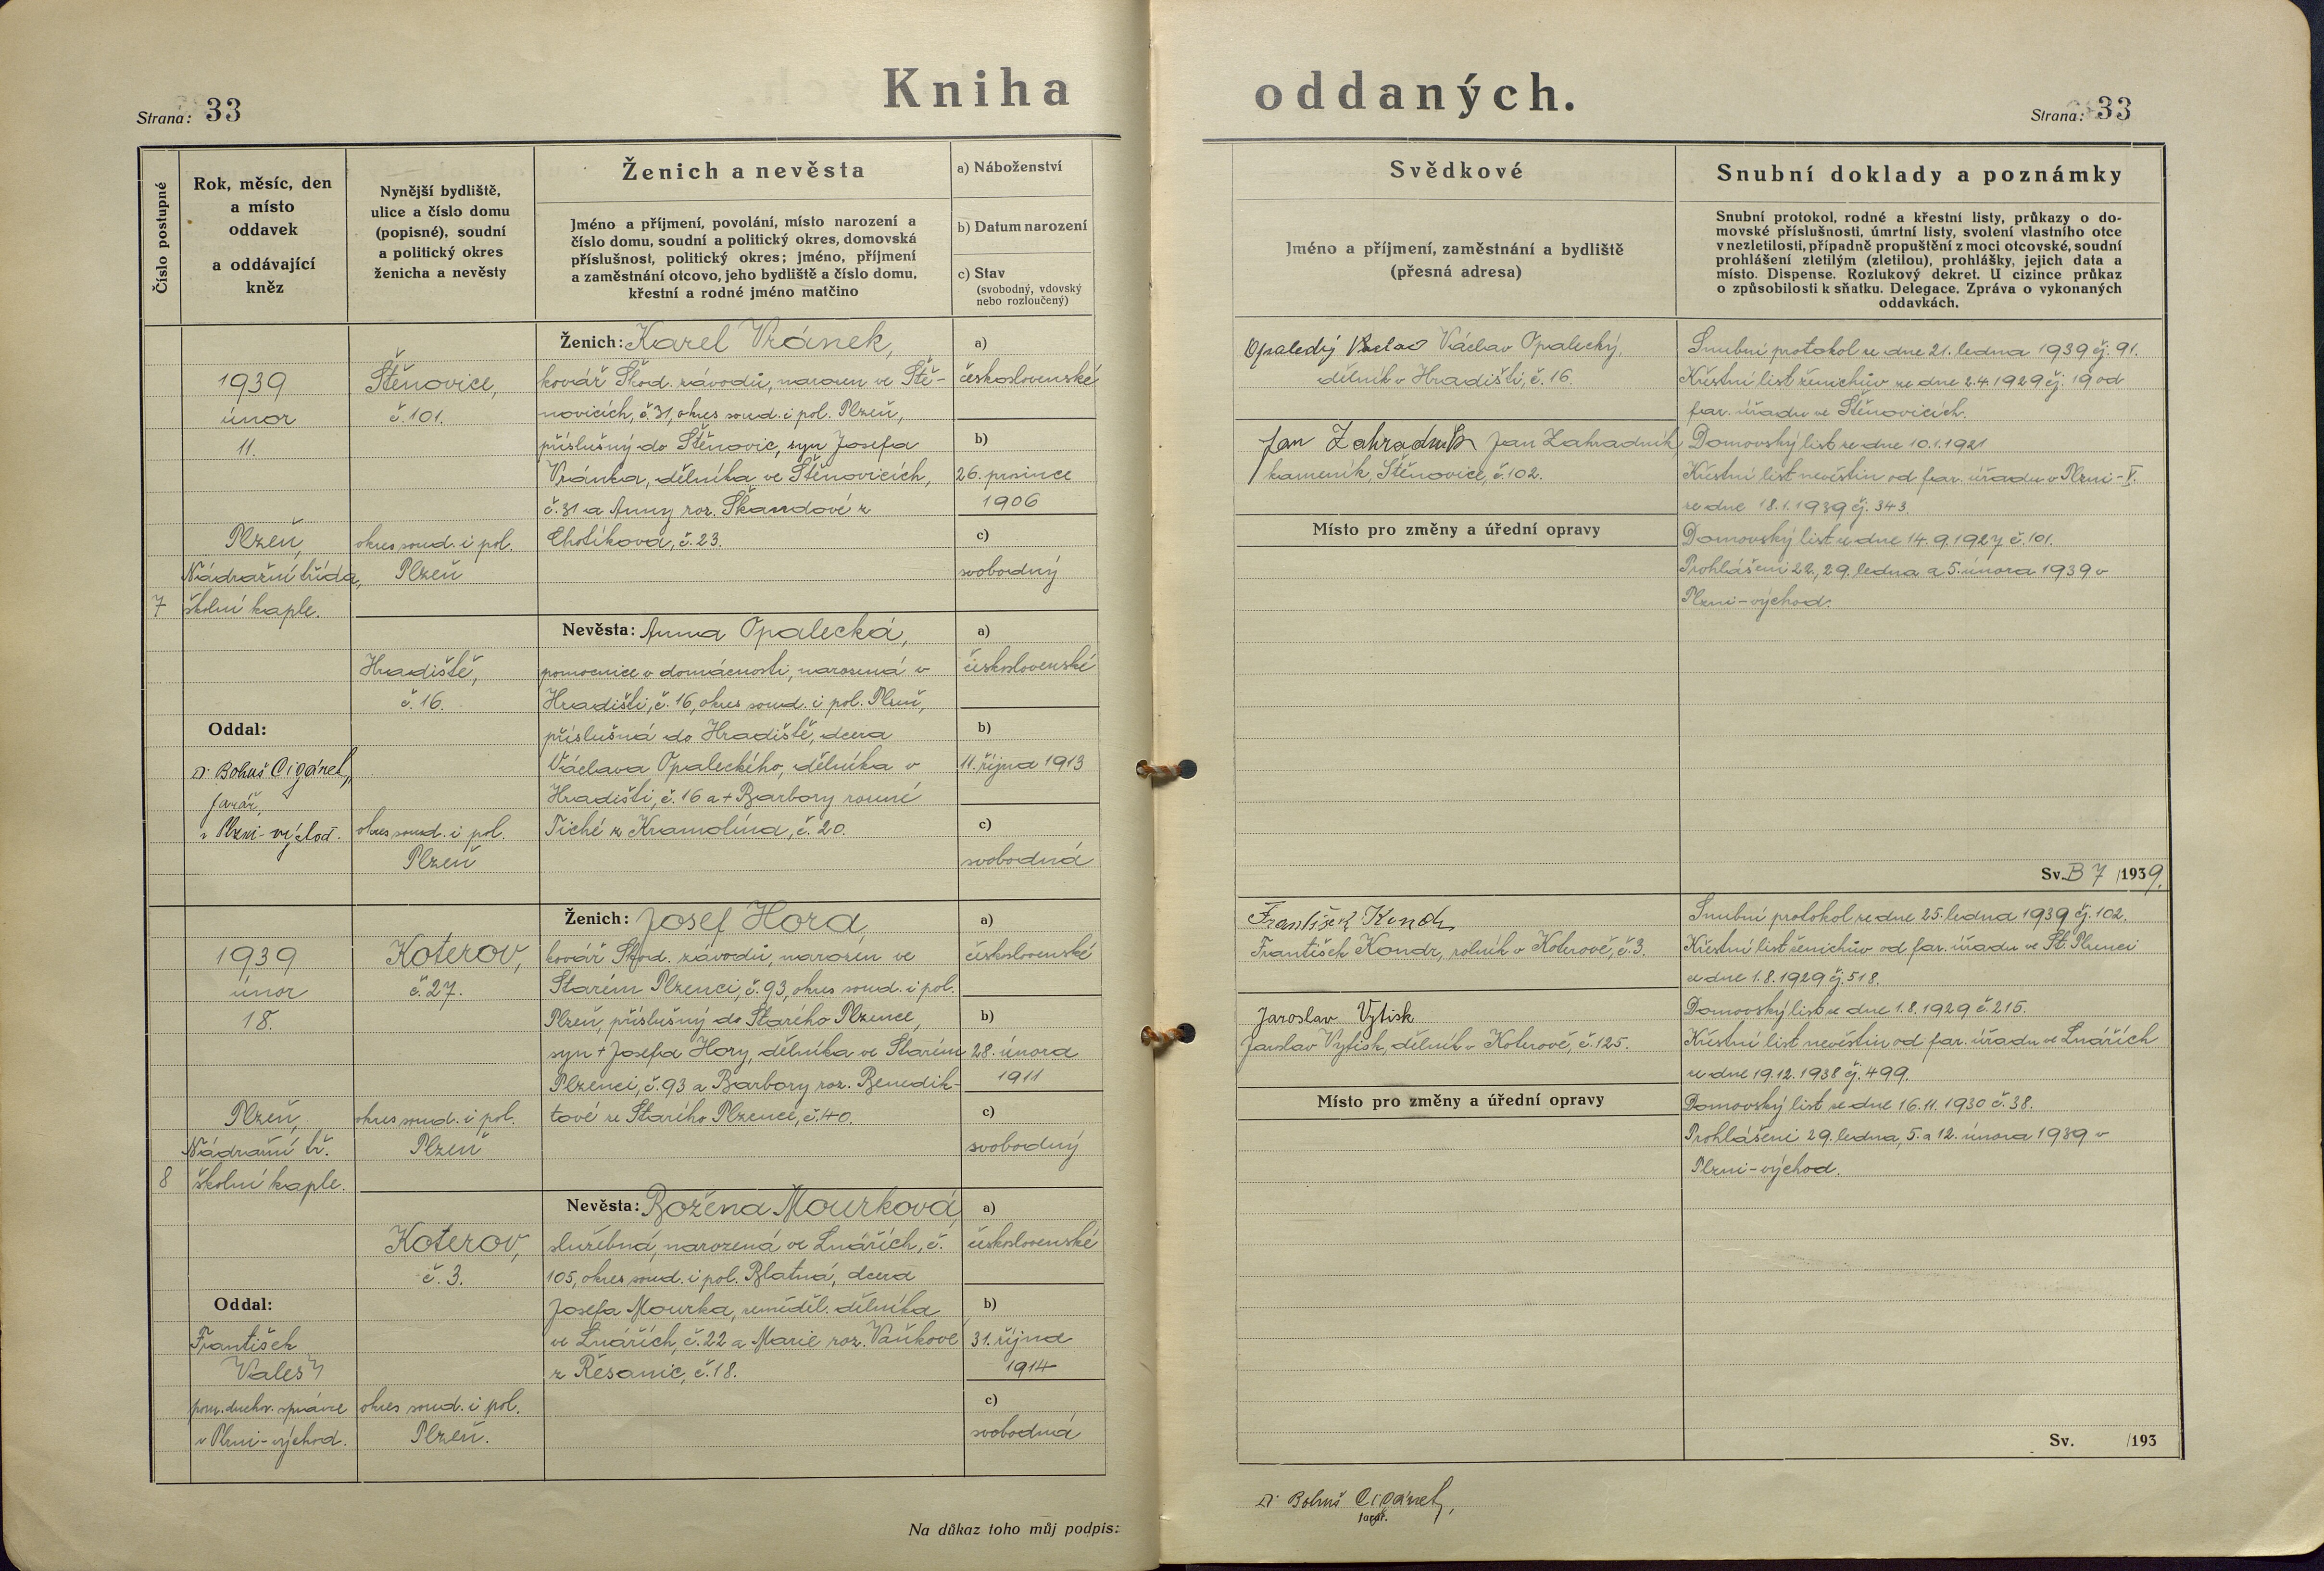 Kniha oddaných.
Strana: 33
Strana: 33
Číslo postupné
Rok, měsíc, den
a místo
oddavek
a oddávající
kněz
Nynější bydliště,
ulice a číslo domu
(popisné), soudní
a politický okres
ženicha a nevěsty
Ženich a nevěsta
Jméno a příjmení, povolání, místo narození a
číslo domu, soudní a politický okres, domovská
příslušnost, politický okres; jméno, příjmení
a zaměstnání otcovo, jeho bydliště a číslo domu,
křestní a rodné jméno matčino
a) Náboženství
b) Datum narození
c) Stav
(svobodný, vdovský
nebo rozloučený)
Svědkové
Jméno a příjmení, zaměstnání a bydliště
(přesná adresa)
Snubní doklady a poznámky
Snubní protokol, rodné a křestní listy, průkazy o do-
movské příslušnosti, úmrtní listy, svolení vlastního otce
v nezletilosti, případně propuštění z moci otcovské, soudní
prohlášení zletilým (zletilou), prohlášky, jejich data a
místo. Dispense. Rozlukový dekret. U cizince průkaz
o způsobilosti k sňatku. Delegace. Zpráva o vykonaných
oddavkách.
7
1939
únor
11.
Plzeň,
Nádražní třída,
školní kaple.
Oddal:
Dr Bohuš Cigánek,
farář
v Plzni-východ.
Štěnovice,
č. 101.
okres soud. i pol.
Plzeň
Hradiště,
č. 16.
okres soud. i pol.
Plzeň
Ženich: Karel Vránek,
kovář Škod. závodů, narozen ve Ště-
novicích, č. 31, okres soud. i pol. Plzeň,
příslušný do Štěnovic, syn Josefa
Vránka, dělníka ve Štěnovicích,
č. 31 a Anny roz. Škandové z
Chotíkova, č. 23.
Nevěsta: Anna Opalecká,
pomocnice v domácnosti, narozená v
Hradišti, č. 16, okres soud. i pol. Plzeň,
příslušná do Hradiště, dcera
Václava Opaleckého, dělníka v
Hradišti, č. 16 a + Barbory rozené
Tiché z Kramolína, č. 20.
a)
československé
b)
26. prosince
1906
c)
svobodný
a)
československé
b)
11. října 1913
c)
svobodná
Opalecký Václav Václav Opalecký,
dělník v Hradišti, č. 16.
Jan Zahradník Jan Zahradník
kameník, Štěnovice, č. 102.
Místo pro změny a úřední opravy
Snubní protokol ze dne 21. ledna 1939 čj. 91.
Křestní list ženichův ze dne 2.4.1929 čj. 19 od
far. úřadu ve Štěnovicích.
Domovský list ze dne 10.1.1921
Křestní list nevěstin od far. úřadu v Plzni-V.
ze dne 18.1.1939 čj. 343.
Domovský list ze dne 14.9.1927 č. 101.
Prohlášeni 22., 29. ledna a 5. února 1939 v
Plzni-východ.
Sv. B 7 /1939.
8
1939
únor
18.
Plzeň,
Nádražní tř.
školní kaple.
Oddal:
František
Valeš
pom. duchov. správce
v Plzni-východ.
Koterov,
č. 27.
okres soud. i pol.
Plzeň
Koterov,
č. 3.
okres soud. i pol.
Plzeň.
Ženich: Josef Hora,
kovář Škod. závodů, narozen ve
Starém Plzenci, č. 93, okres soud. i pol.
Plzeň, příslušný do Starého Plzence,
syn + Josefa Hory, dělníka ve Starém
Plzenci, č. 93 a Barbory roz. Benedik-
tové ze Starého Plzence, č. 40.
Nevěsta: Božena Mourková,
služebná, narozená ve Lnářích, č.
105, okres soud. i pol. Blatná, dcera
Josefa Mourka, zeměděl. dělníka
ve Lnářích, č. 22 a Marie roz. Vaňkove
z Řesanic, č. 18.
a)
československé
b)
28. února
1911
c)
svobodný
a)
československé
b)
31. října
1914
c)
svobodná
František Kondr
František Kondr, rolník v Koterově, č. 3.
Jaroslav Vytisk
Jaroslav Vytisk, dělník v Koterově, č. 125.
Místo pro změny a úřední opravy
Snubní protokol ze dne 25. ledna 1939 čj. 102.
Křestní list ženichův od far. úřadu ve St. Plzenci
ze dne 1.8.1929 čj. 518.
Domovský list ze dne 1.8.1929 č. 215.
Křestní list nevěstin od far. úřadu ve Lnářích
ze dne 19.12.1938 čj. 499.
Domovský list ze dne 16.11.1930 č. 38.
Prohlášeni 29. ledna, 5. a 12. února 1939 v
Plzni-východ.
Sv. /193
Na důkaz toho můj podpis:
Dr Bohuš Cigánek,
farář.